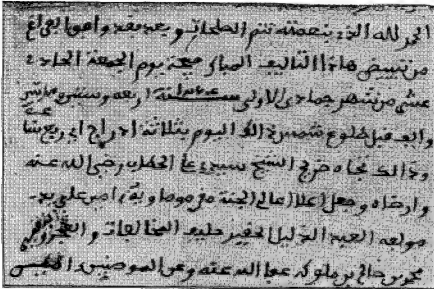 الحمد لله الذي بنعمته تتم الصالحات وبعد فقد وافق الفراغ
من تبييض هاذا التاليف المبارك صبيحة يوم الجمعة الحادي
عشر من شهر جمادى الاولى سنة اربعة وستين ومائتين
والف قبل طلوع شمس ذلك اليوم بثلاثة ادراج
وذالك تجاه ضريح الشيخ سيدي على الحطاب رضي الله عنه
وارضاه وجعل اعلا اعالي الجنة مثواه على يد
مولفه العبد الذليل الحقير حليف المخالفات
محمد بن صالح بن ملوكه عفا الله عنه وعن المومنين